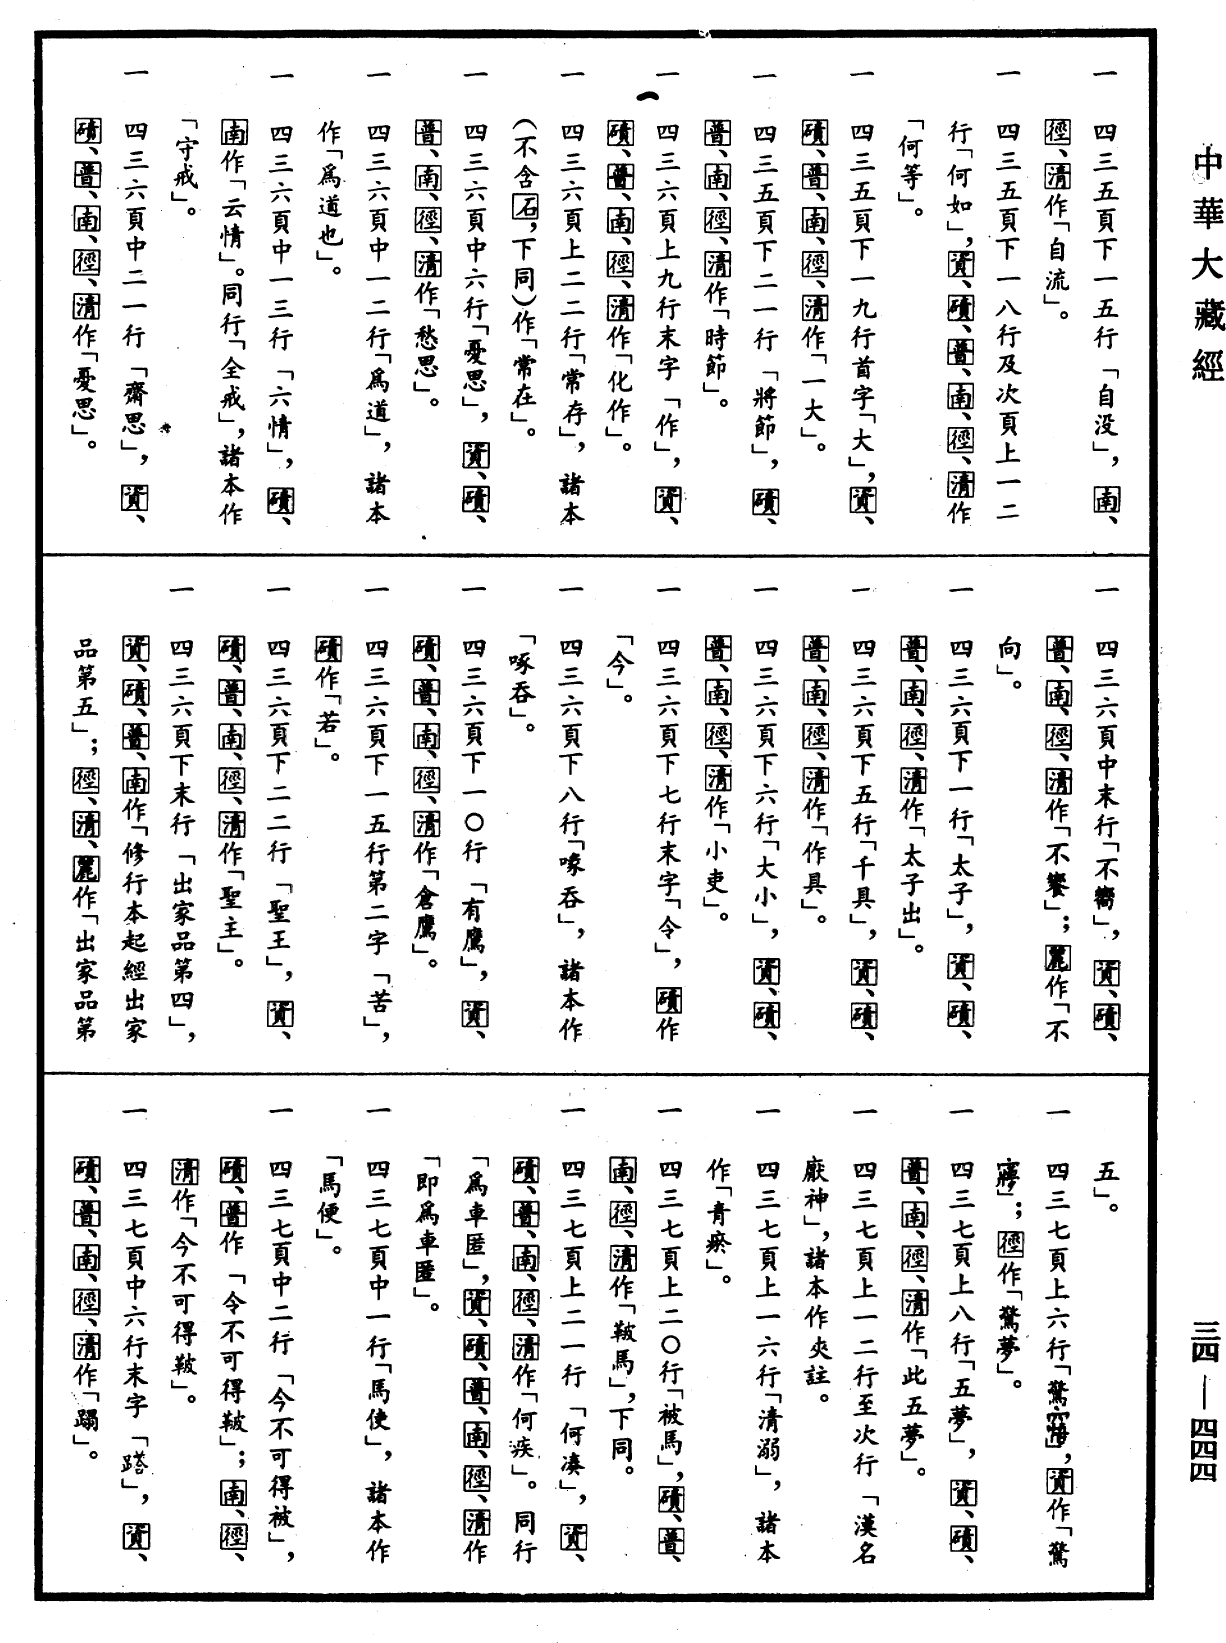 中華大藏經
一　四三五頁下一五行「自没」，南、
徑、清作「自流」。
一　四三五頁下一八行及次頁上一二
行「何如」，資、磧、普、南、徑、清作
「何等」。
一　四三五頁下一九行首字「大」，資、
磧、普、南、徑、清作「一大」。
一　四三五頁下二一行「將節」，磧、
普、南、徑、清作「時節」。
一　四三六頁上九行末字「作」，資、
磧、普、南、徑、清作「化作」。
一　四三六頁上二二行「常存」，諸本
（不含石，下同）作「常在」。
一　四三六頁中六行「憂思」，資、磧、
普、南、徑、清作「愁思」。
一　四三六頁中一二行「爲道」，諸本
作「爲道也」。
一　四三六頁中一三行「六情」，磧、
南作「云情」。同行「全戒」，諸本作
「守戒」。
一　四三六頁中二一行「齋思」，資、
磧、普、南、徑、清作「憂思」。
一　四三六頁中末行「不嚮」，資、磧、
普、南、徑、清作「不饗」；麗作「不
向」。
一　四三六頁下一行「太子」，資、磧、
普、南、徑、清作「太子出」。
一　四三六頁下五行「千具」，資、磧、
普、南、徑、清作「作具」。
一　四三六頁下六行「大小」，資、磧、
普、南、徑、清作「小吏」。
一　四三六頁下七行末字「令」，磧作
「今」。
一　四三六頁下八行「喙吞」，諸本作
「啄吞」。
一　四三六頁下一〇行「有鷹」，資、
磧、普、南、徑、清作「倉鷹」。
一　四三六頁下一五行第二字「苦」，
磧作「若」。
一　四三六頁下二二行「聖王」，資、
磧、普、南、徑、清作「聖主」。
一　四三六頁下末行「出家品第四」，
資、磧、普、南作「修行本起經出家
品第五」；徑、清、麗作「出家品第
五」。
一　四三七頁上六行「驚寤」，資作「驚
寢」；徑作「驚夢」。
一　四三七頁上八行「五夢」，資、磧、
普、南、徑、清作「此五夢」。
一　四三七頁上一二行至次行「漢名
厭神」，諸本作夾註。
一　四三七頁上一六行「清溺」，諸本
作「青瘀」。
一　四三七頁上二〇行「被馬」，磧、普、
南、徑、清作「鞁馬」，下同。
一　四三七頁上二一行「何湊」，資、
磧、普、南、徑、清作「何疾」。同行
「爲車匿」，資、磧、普、南、徑、清作
「即爲車匿」。
一　四三七頁中一行「馬使」，諸本作
「馬便」。
一　四三七頁中二行「今不可得被」，
磧、普作「令不可得鞁」；南、徑、
清作「今不可得鞁」。
一　四三七頁中六行末字「蹹」，資、
磧、普、南、徑、清作「蹋」。
三四—四四四